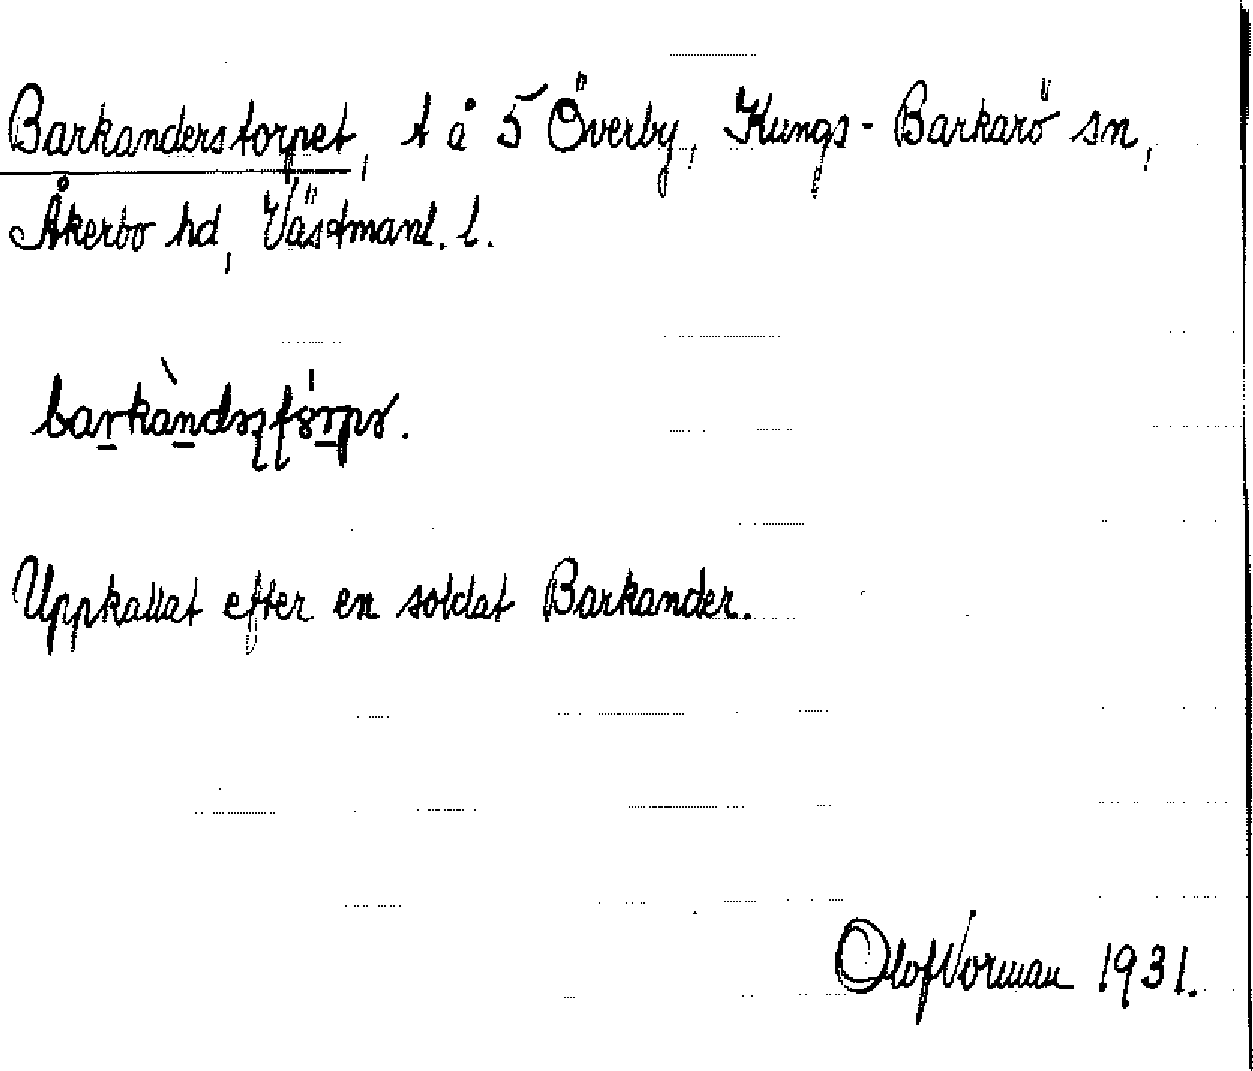 Barkanderstorpet, t å 5 Överby, Kungs-Barkarö sn,
Åkerbo hd, Västmanl. l.
Uppkallat efter en soldat Barkander.
Olof Norman 1931.